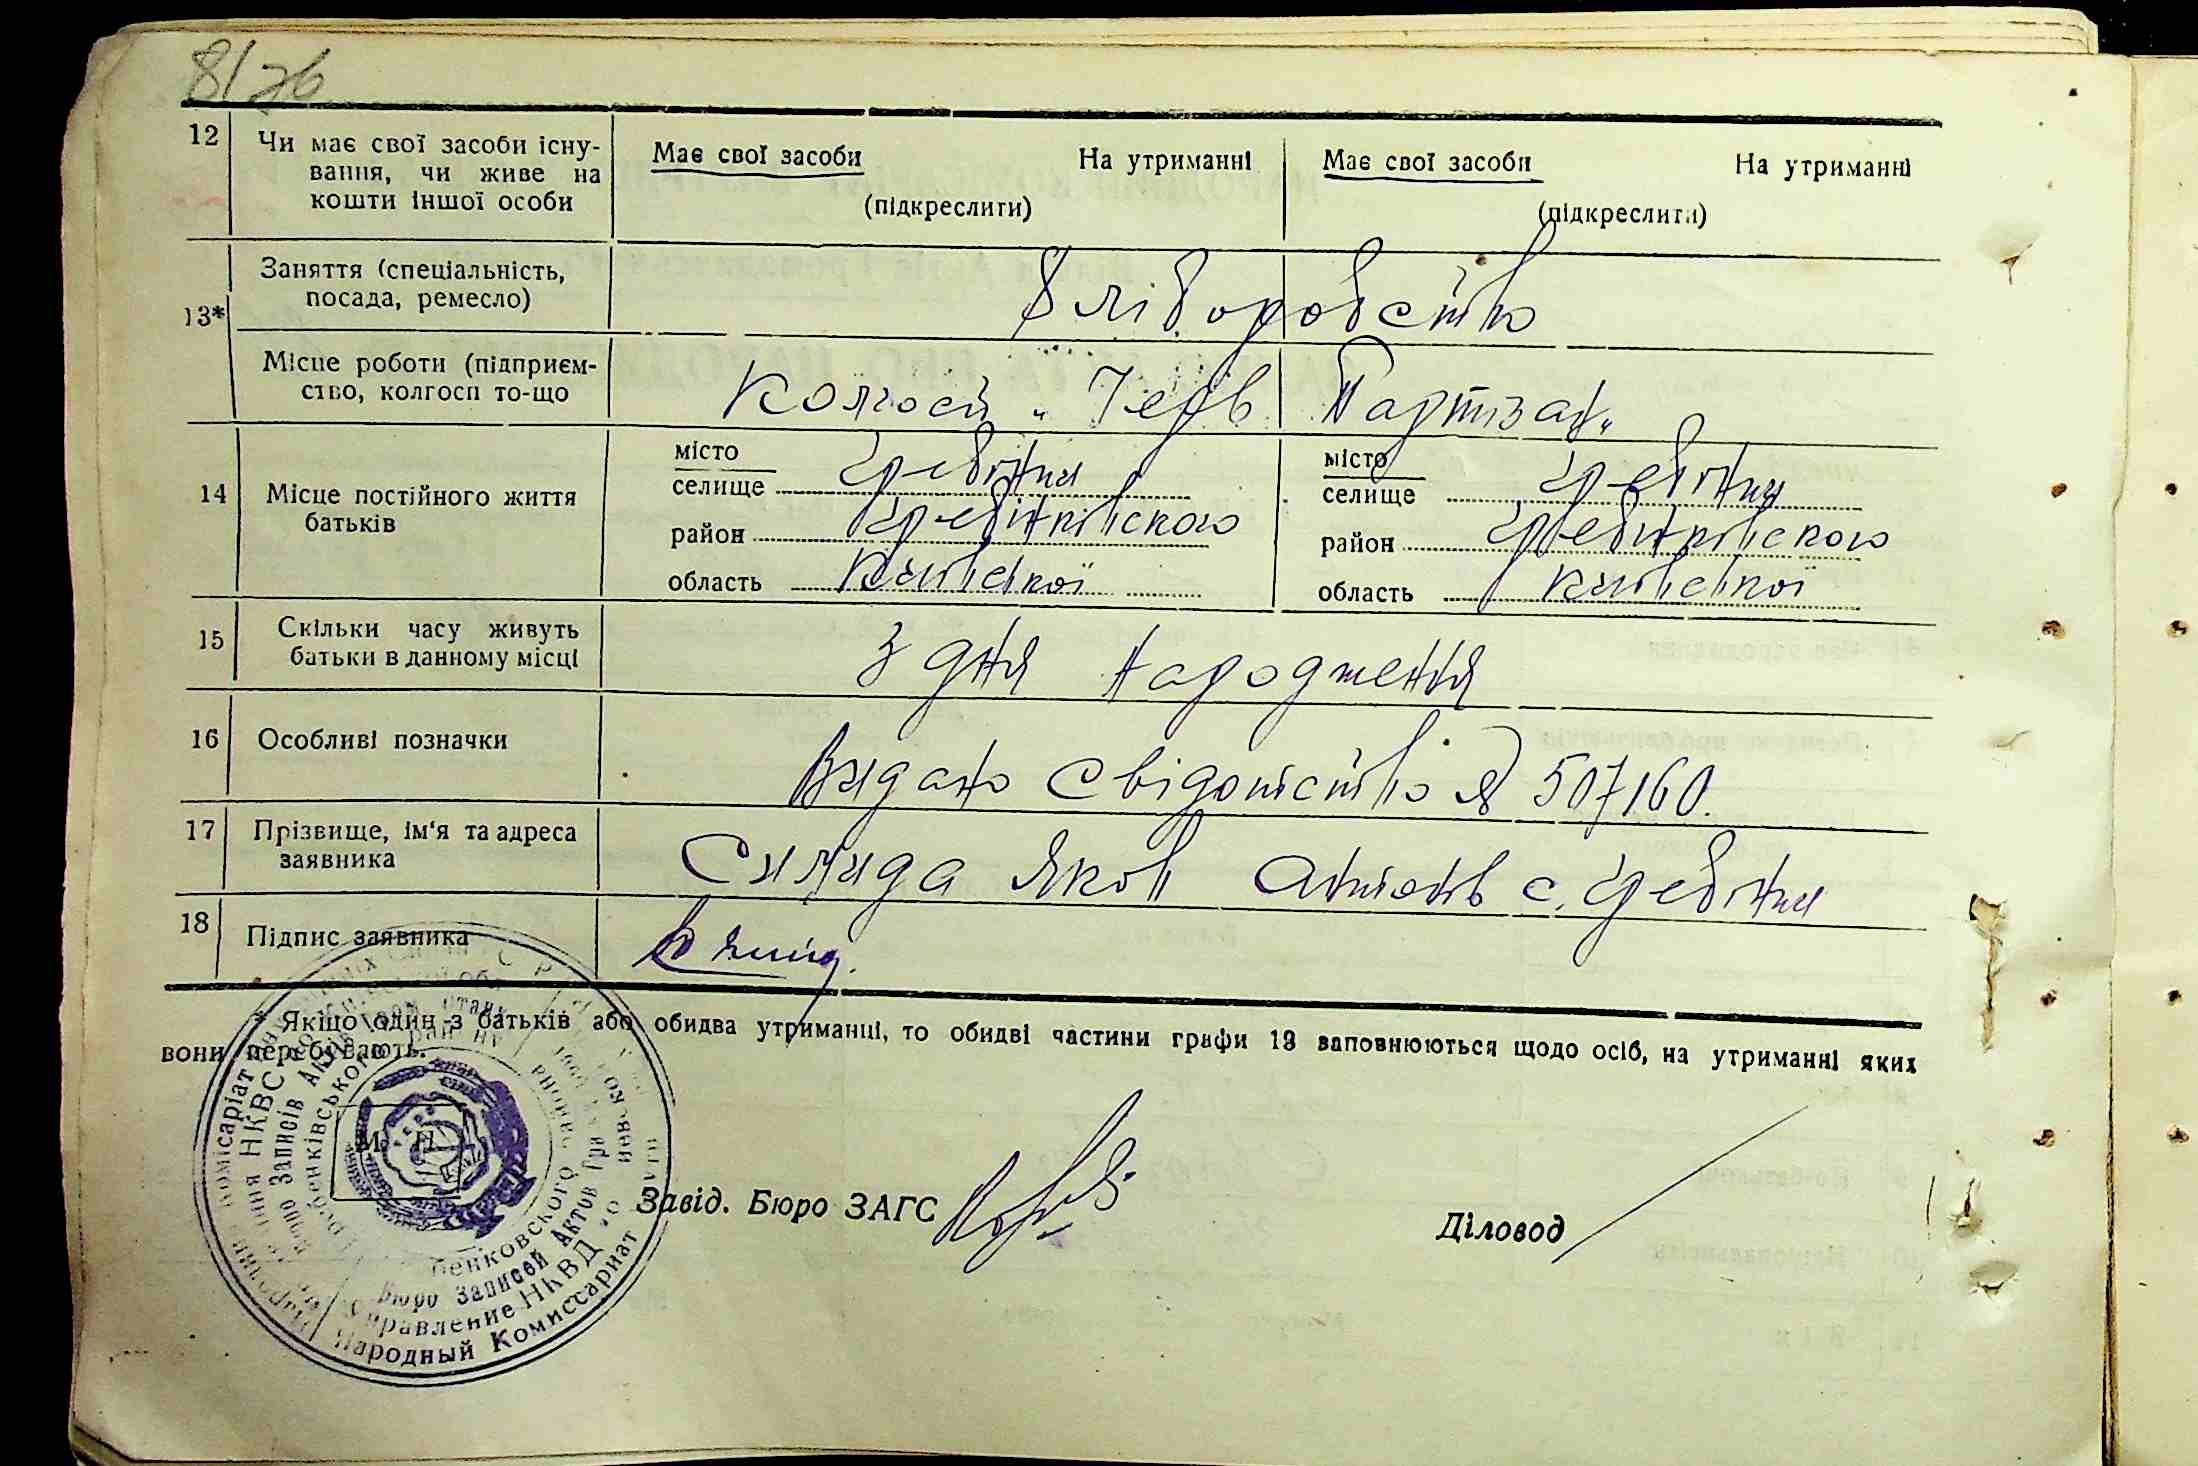 8/зв
12 Чи має свої засоби існу-
вання, чи живе на
кошти іншої особи
Має свої засоби На утриманні
(підкреслити)
Має свої засоби На утриманні
(підкреслити)
13* Заняття (спеціальність,
посада, ремесло)
Хліборобство
Місце роботи (підприєм-
ство, колгосп то-що
Колгосп „Черв Партизан„
14 Місце постійного життя
батьків
місто
селище Гребінки
район Гребінківського
область Київської
місто
селище Гребінки
район Гребінківського
область Київської
15 Скільки часу живуть
батьки в данному місці
З дня народження
16 Особливі позначки
Видано свідотство № 507160.
17 Прізвище, ім'я та адреса
заявника
Силида Яков Антонів с. Гребінки
18 Підпис заявника
* Якщо один з батьків або обидва утриманці, то обидві частини графи 13 заповнюються щодо осіб, на утриманні яких
вони перебувають.
М. П.
Завід. Бюро ЗАГС
Діловод
Народный Комиссариат
Управление НКВД
Бюро Записей Актов
бенковского